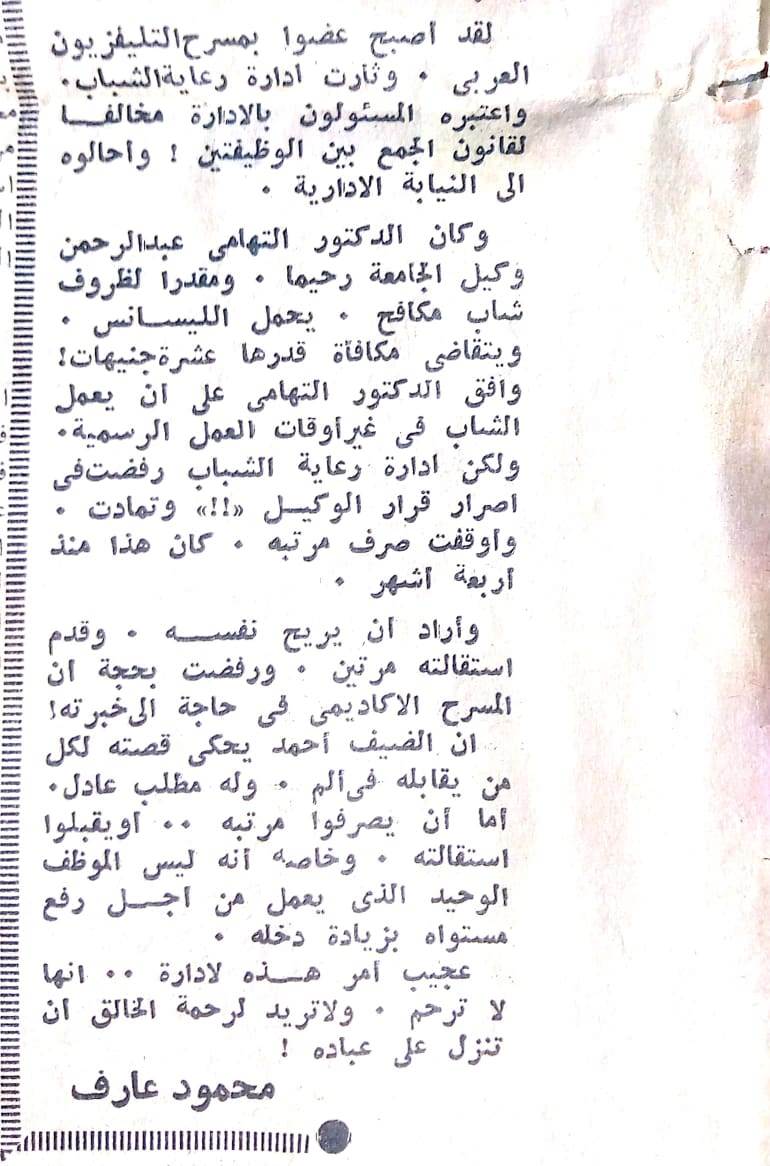 لقد أصبح عضوا بمسرح التليفزيون
العربى . وثارت ادارة رعاية الشباب .
واعتبره المسئولون بالادارة مخالفا
لقانون الجمع بين الوظيفتين ! وأحالوه
الى النيابة الادارية .
وكان الدكتور التهامى عبدالرحمن
وكيل الجامعة رحيما . ومقدرا لظروف
شاب مكافح . يحمل الليسانس .
ويتقاضى مكافأة قدرها عشرة جنيهات!
وافق الدكتور التهامى على أن يعمل
الشاب فى غير أوقات العمل الرسمية .
ولكن ادارة رعاية الشباب رفضت فى
اصرار قرار الوكيل «!!» وتمادت .
وأوقفت صرف مرتبه . كان هذا منذ
أربعة أشهر .
وأراد أن يريح نفسه . وقدم
استقالته مرتين . ورفضت بحجة أن
المسرح الاكاديمى فى حاجة الى خبرته!
ان الضيف أحمد يحكى قصته لكل
من يقابله فى ألم . وله مطلب عادل .
أما أن يصرفوا مرتبه .. أو يقبلوا
استقالته . وخاصه أنه ليس الموظف
الوحيد الذى يعمل من أجل رفع
مستواه بزيادة دخله .
عجيب أمر هذه لادارة .. انها
لا ترحم . ولا تريد لرحمة الخالق أن
تنزل على عباده !
محمود عارف